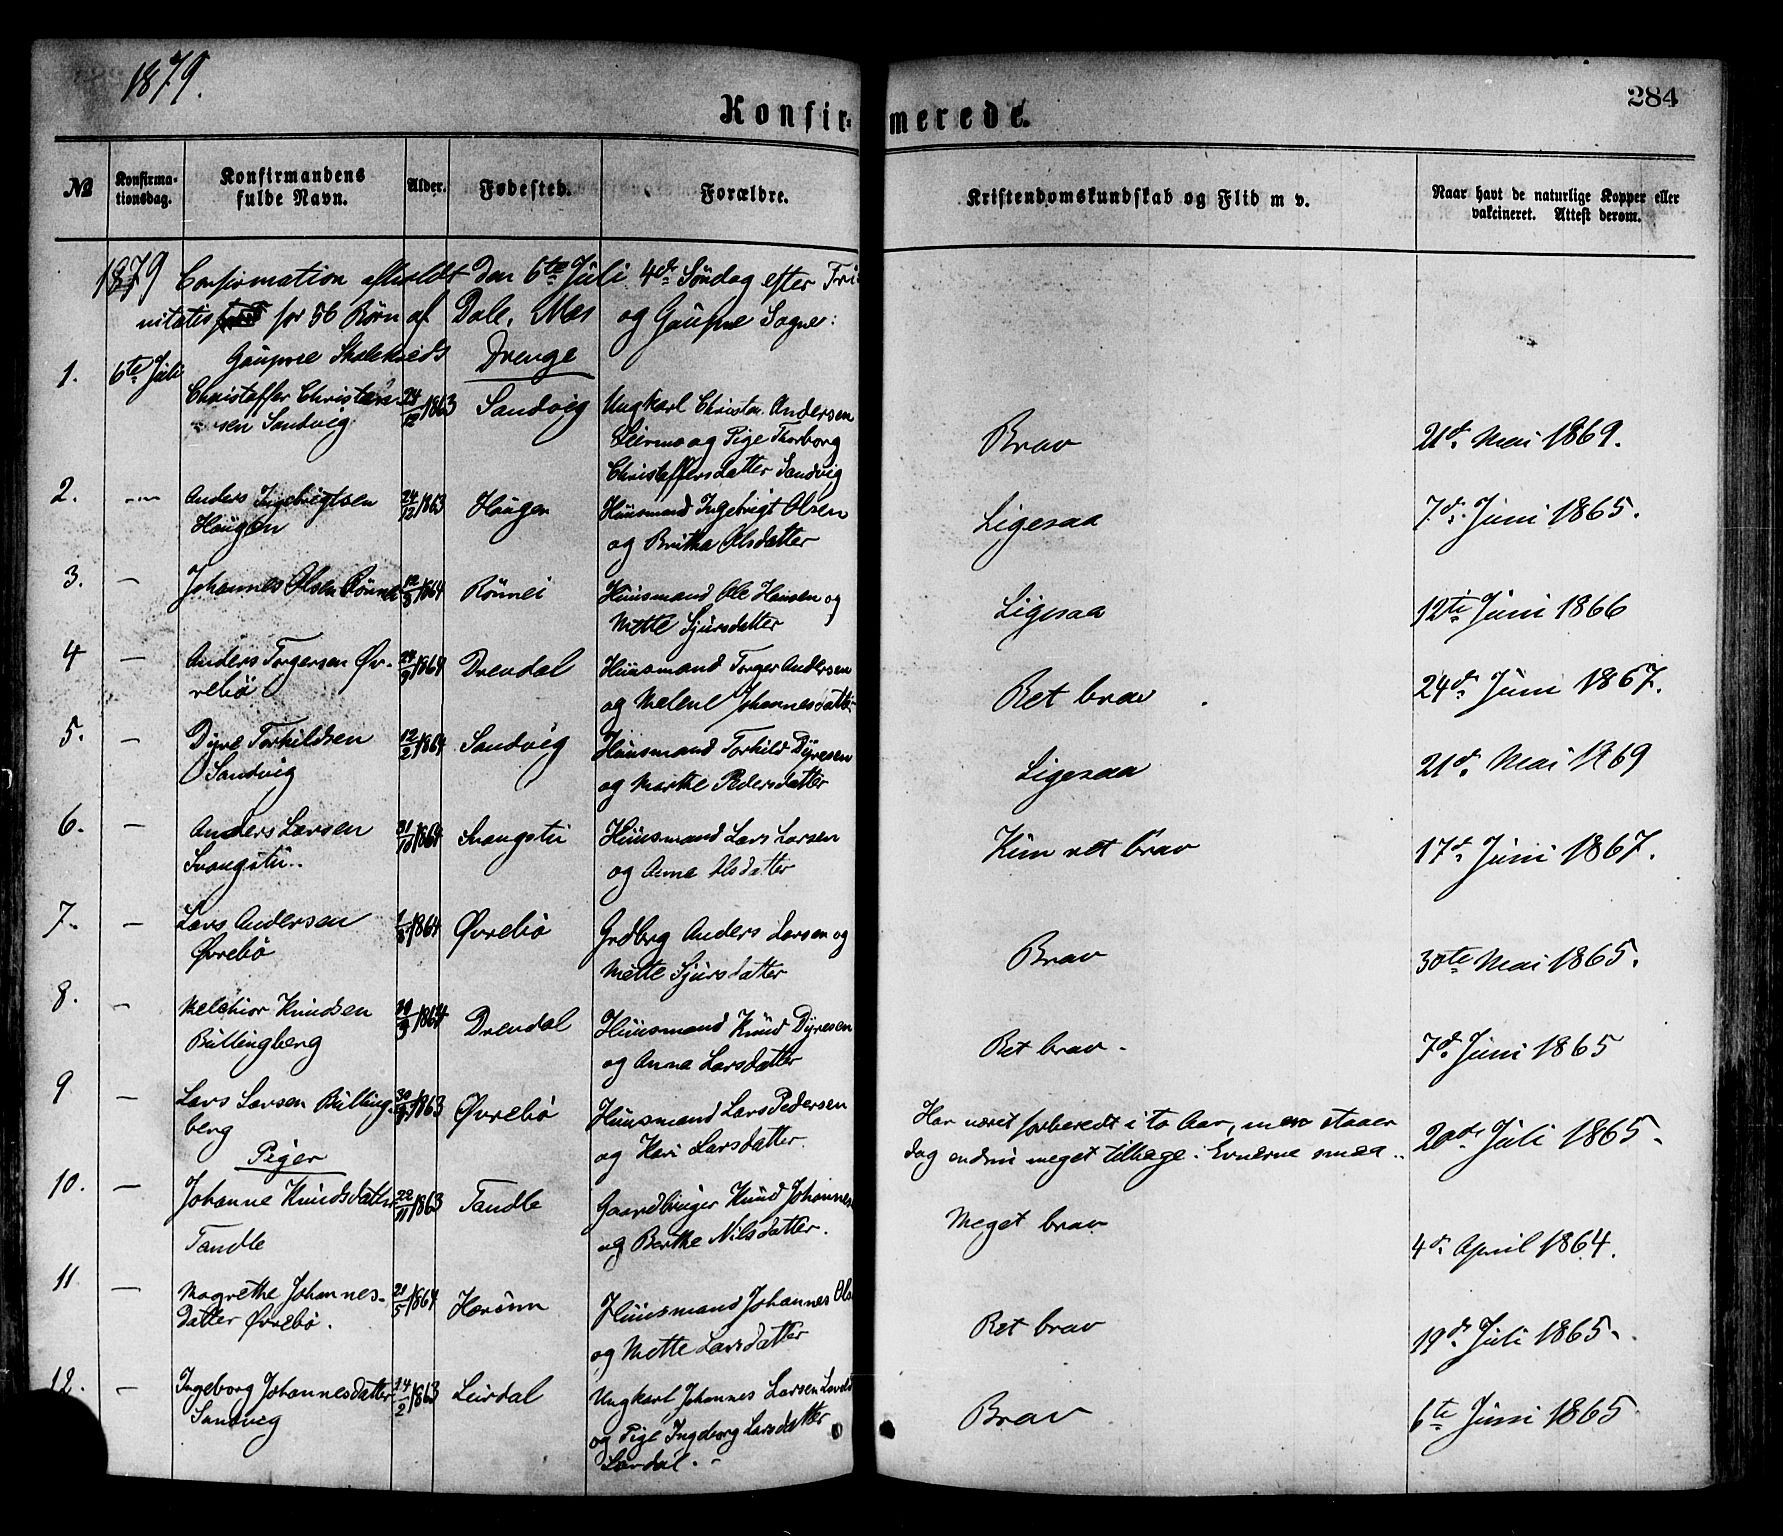 1879.
284
Konfirmerede.
№ Konfirmationsdag. Konfirmandens fulde Navn. Alder. Fødested. Forældre. Kristendomskundskab og Flid m v. Naar havt de naturlige Kopper eller vakcineret. Attest derom.
1879 Confirmation afholdt den 6te Juli 4de Søndag efter Tri-
nitatis for 56 Børn af Dale, Nes og Gaupne Sogne:
Gaupne Skolekreds Drenge
1. 6te Juli
Christoffer Christen- 24/12 1863 Sandvig Ungkarl Christen Andersen
sen Sandvig Leirmo og Pige Thorborg Brav 21de Mai 1869.
Christoffersdatter Sandvig
2. — Anders Ingebrigtsen 24/12 1863 Haugen Huusmand Ingebrigt Olsen Ligesaa 7de Juni 1865.
Haugen og Britha Olsdatter
3. — Johannes Olsen Rønnei 12/3 1864 Rønnei Huusmand Ole Hansen og Ligesaa 12te Juni 1866
Mette Sjursdatter
4 — Anders Torgersen Øv- 1864 Drevdal Huusmand Torger Andersen
rebø og Melene Johannesdatter Ret brav. 24de Juni 1867.
5. — Dyre Torkildsen 12/2 1864 Sandvig Huusmand Torkild Dyresen
Sandvig og Marthe Pedersdatter Ligesaa 21de Mai 1869
6. — Anders Larsen 31/10 1864 Svangstu Huusmand Lars Larsen Kun ret brav 17de Juni 1867.
Svangstu.. og Anna Olsdatter
7. — Lars Andersen 1864 Øvrebø Grdbrg Anders Larsen og
Øvrebø Mette Sjursdatter Brav 30te Mai 1865.
8. — Melchior Knudsen 1864 Drevdal Huusmand Knud Dyresen
Bullingberg og Anna Larsdatter Ret brav. 7de Juni 1865
9 — Lars Larsen Bulling- 1863 Øvrebø Huusmand Lars Pedersen Har været forberedt i to Aar, men staaer
berg og Kari Larsdatter. dog endnu meget tilbage. Evnerne smaa.. 20de Juli 1865.
Piger
10. — Johanne Knudsdatter 22/11 1863 Tandle Gaardbruger Knud Johannes Meget brav
Tandle og Berthe Nilsdatter. 4de April 1864.
11 — Magrethe Johannes- 21/5 1864 Huusmand Johannes Ols
datter Øvrebø. og Mette Larsdatter Ret brav 19de Juli 1865.
12. — Ingeborg Johannesdatter 14/2 1863 Leirdal Ungkarl Johannes Larsen
Sandvig og Pige Ingeborg Larsdatter Brav 6te Juni 1865
Lærdal.